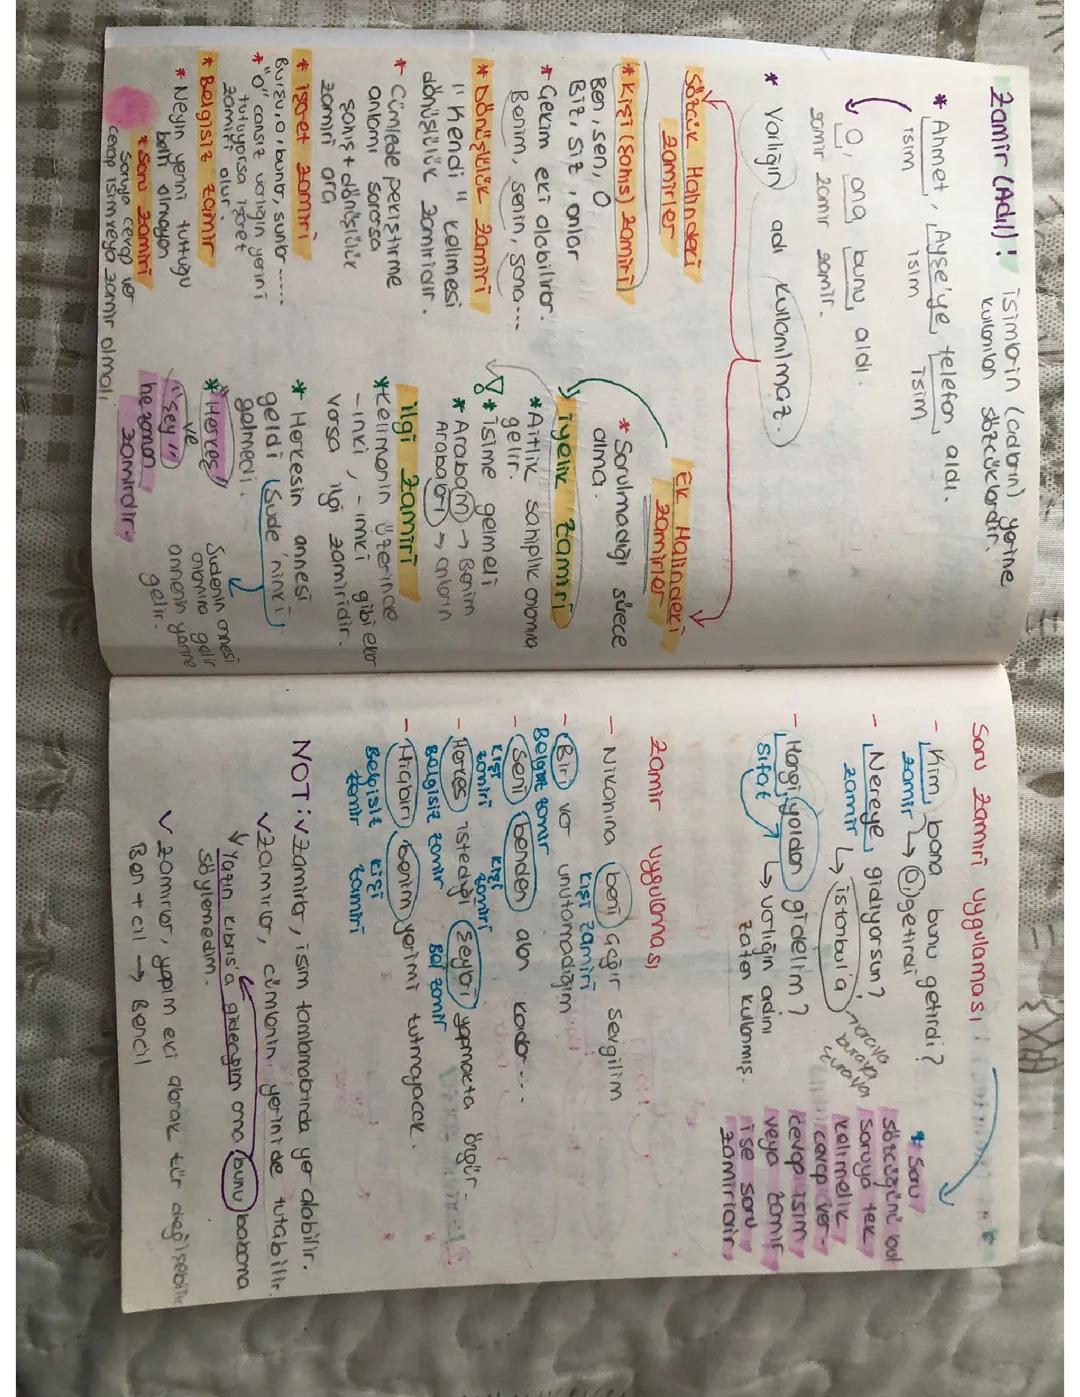 Zamir (Adıl): isimlerin (adların) yerine
kullanılan sözcüklerdir.
* Ahmet, Ayşe'ye telefon aldı.
isim isim isim
O, ona bunu aldı.
zamir zamir zamir.
* Varlığın adı kullanılmaz.
Sözcük Halindeki
zamirler
* Kişi (şahıs) zamiri
Ben, sen, O
Biz, siz, onlar
* Çekim eki alabilirler.
Benim, senin, sana...
* Dönüşlülük zamiri
"Kendi" kelimesi
dönüşlülük zamiridir.
* Cümlede pekiştirme
anlamı sorarsa
şahıs + dönüşlülük
zamiri ara
* işaret zamiri
Bu, şu, o, bunlar, şunlar.....
* "O" cansız varlığın yerini
tutuyorsa işaret
zamiri olur.
* Belgisiz zamir
* Neyin yerini tuttuğu
belli olmayan
* Soru zamiri
Soruya cevap ver
cevap isim veya zamir olmalı
Ek Halindeki
zamirler
* Sorulmadığı sürece
alma.
iyelik zamiri
* Aitlik sahiplik anlamına
gelir.
* İsime gelmeli
* Arabam → Benim
Arabaları → onların
ilgi zamiri
* Kelimenin üzerinde
-ınki, -imki gibi ekler
varsa ilgi zamiridir.
* Herkesin annesi
geldi Sude'ninki
gelmedi.
Sudenin annesi
anlamına gelir
annenin yerine
gelir.
* "Herkes"
ve
"Şey"
her zaman
zamirdir.
Soru zamiri uygulaması
- Kim bana bunu getirdi?
zamir → O getirdi
- Nereye gidiyorsun?
zamir → istanbul'a
oraya
buraya
şuraya
- Hangi yoldan gidelim?
Sıfat → varlığın adını
zaten kullanmış.
* Soru
sözcüğünü bul
Soruya tek
kelimelik
cevap ver
cevap isim
veya zamir
ise soru
zamiridir
Zamir uygulaması
- Nikahına beni çağır sevgilim
kişi zamiri
- Biri var unutamadığım
Belgisiz zamir
- Seni benden alan kader...
kişi zamiri kişi zamiri
- Herkes istediği şeyleri yapmakta özgür.
Belgisiz zamir Bel zamir
- Hiçbiri benim yerimi tutmayacak.
Belgisiz zamir kişi zamiri
NOT: ✓ Zamirler, isim tamlamalarında yer alabilir.
✓ Zamirler, cümlenin yerini de tutabilir.
✓ Yazın Kıbrıs'a gideceğim ama bunu babama
söylemedim.
✓ Zamirler, yapım eki alarak tür değişebilir
Ben + cil → Bencil